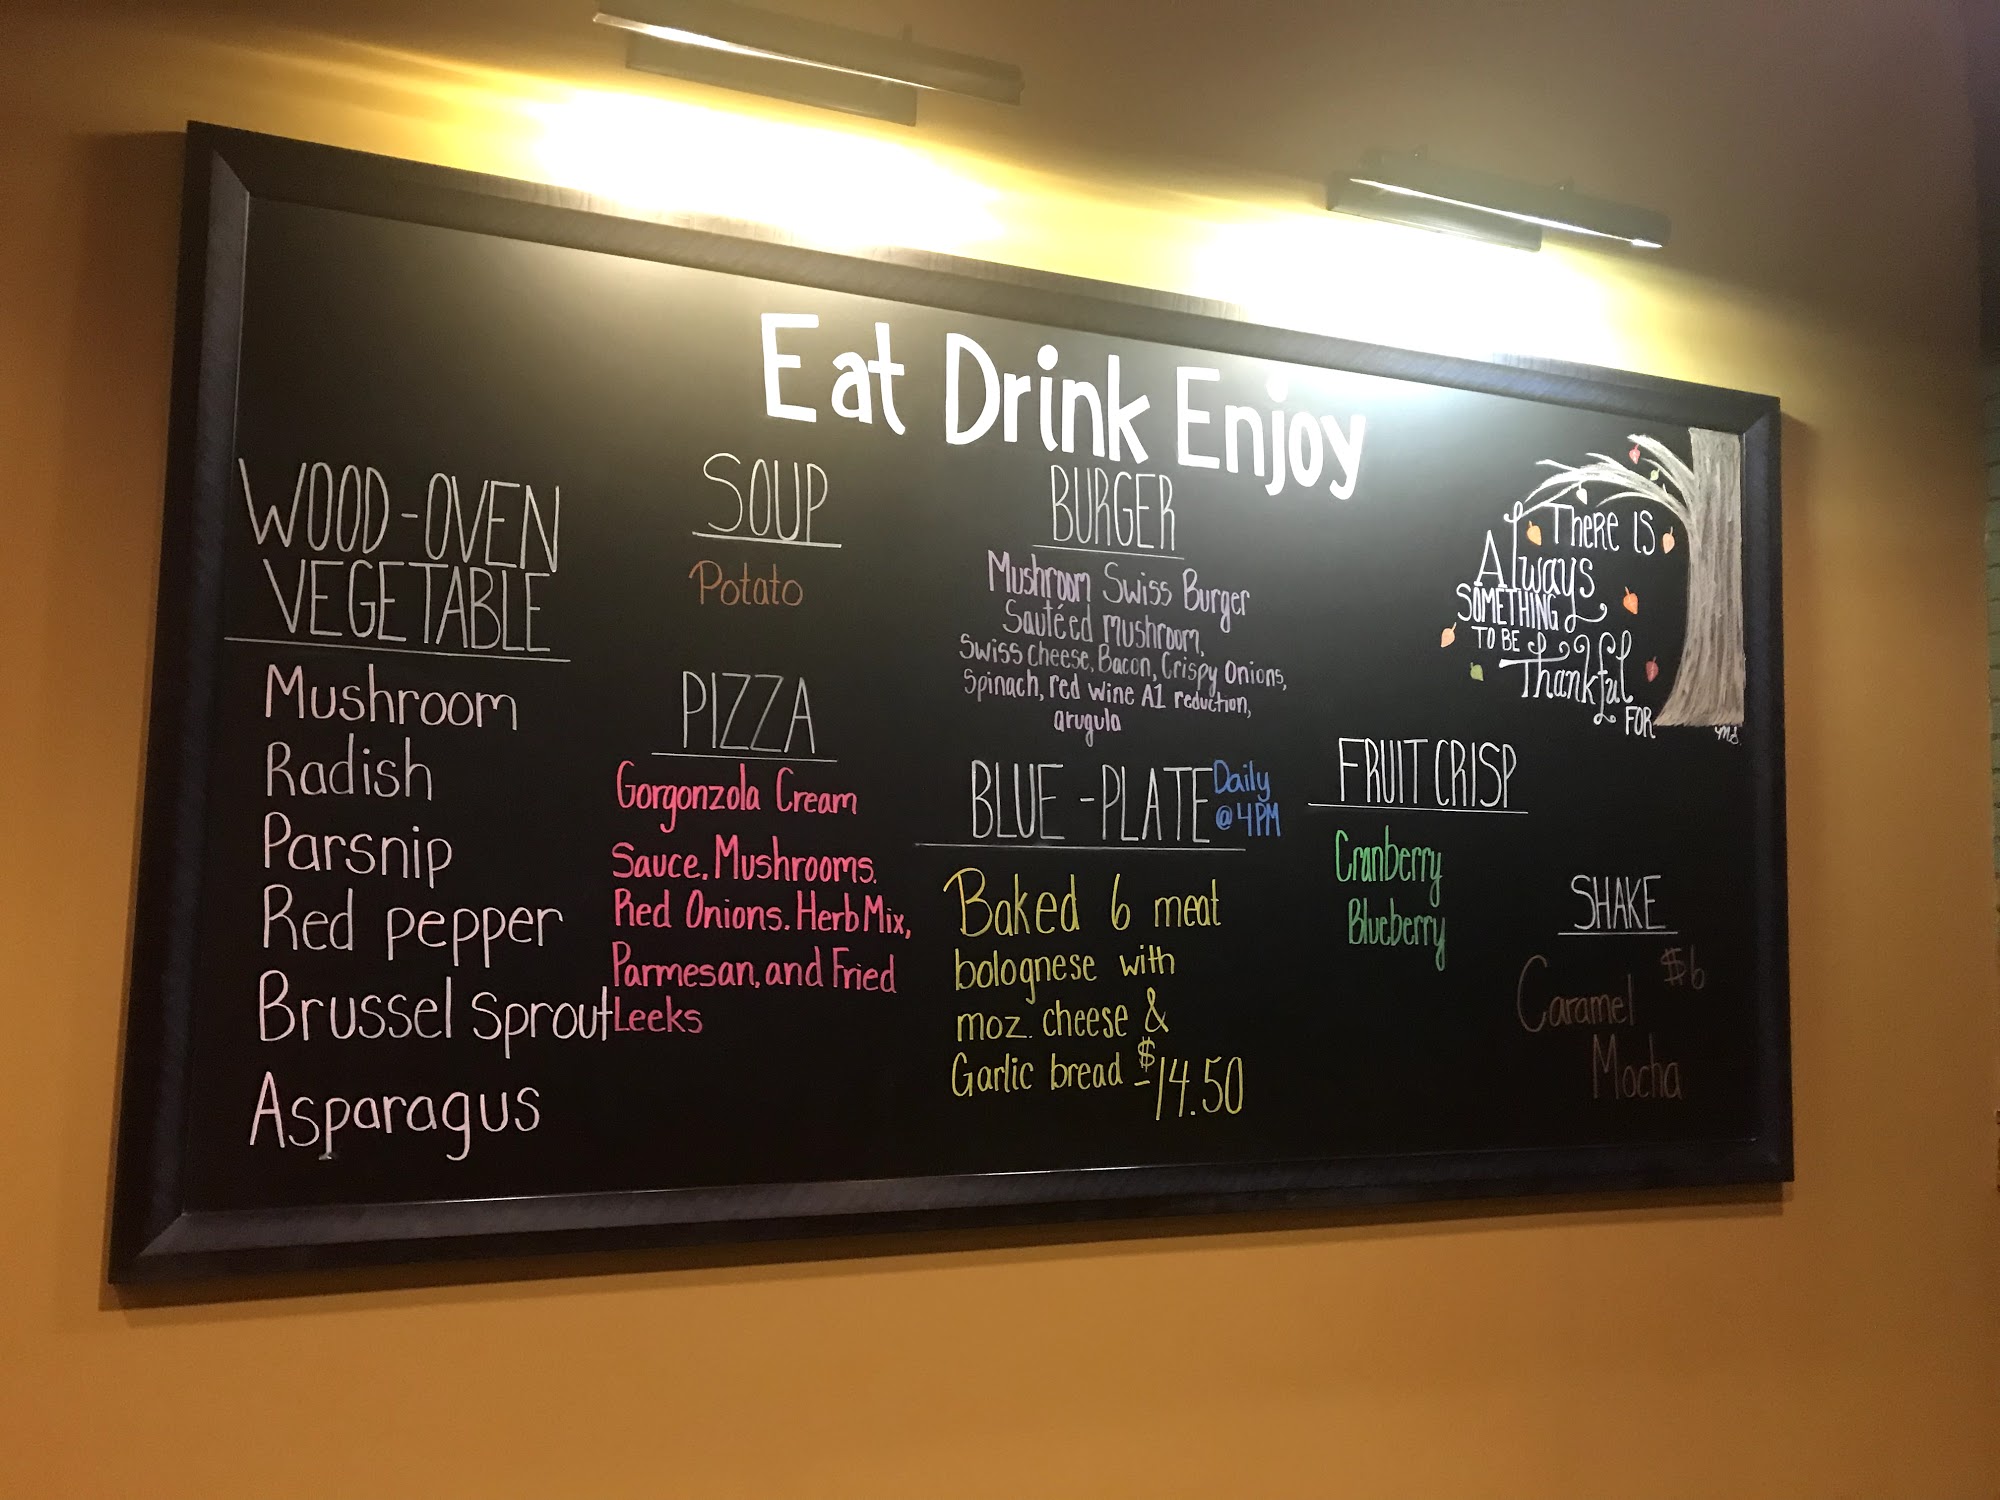 Eat Drink Enjoy
WOOD-OVEN
VEGETABLE
Mushroom
Radish
Parsnip
Red pepper
Brussel sprout
Asparagus
SOUP
Potato
PIZZA
Gorgonzola Cream
Sauce, Mushrooms,
Red Onions, Herb Mix,
Parmesan, and Fried
Leeks
BURGER
Mushroom Swiss Burger
Sautéed mushroom,
Swiss cheese, Bacon, Crispy Onions,
Spinach, red wine A1 reduction,
arugula
BLUE-PLATE Daily
@ 4PM
Baked 6 meat
bolognese with
moz. cheese &
Garlic bread $14.50
THERE IS
Always
SOMETHING
TO BE
Thankful
FOR
M.S.
FRUIT CRISP
Cranberry
Blueberry
SHAKE
$6
Caramel
Mocha